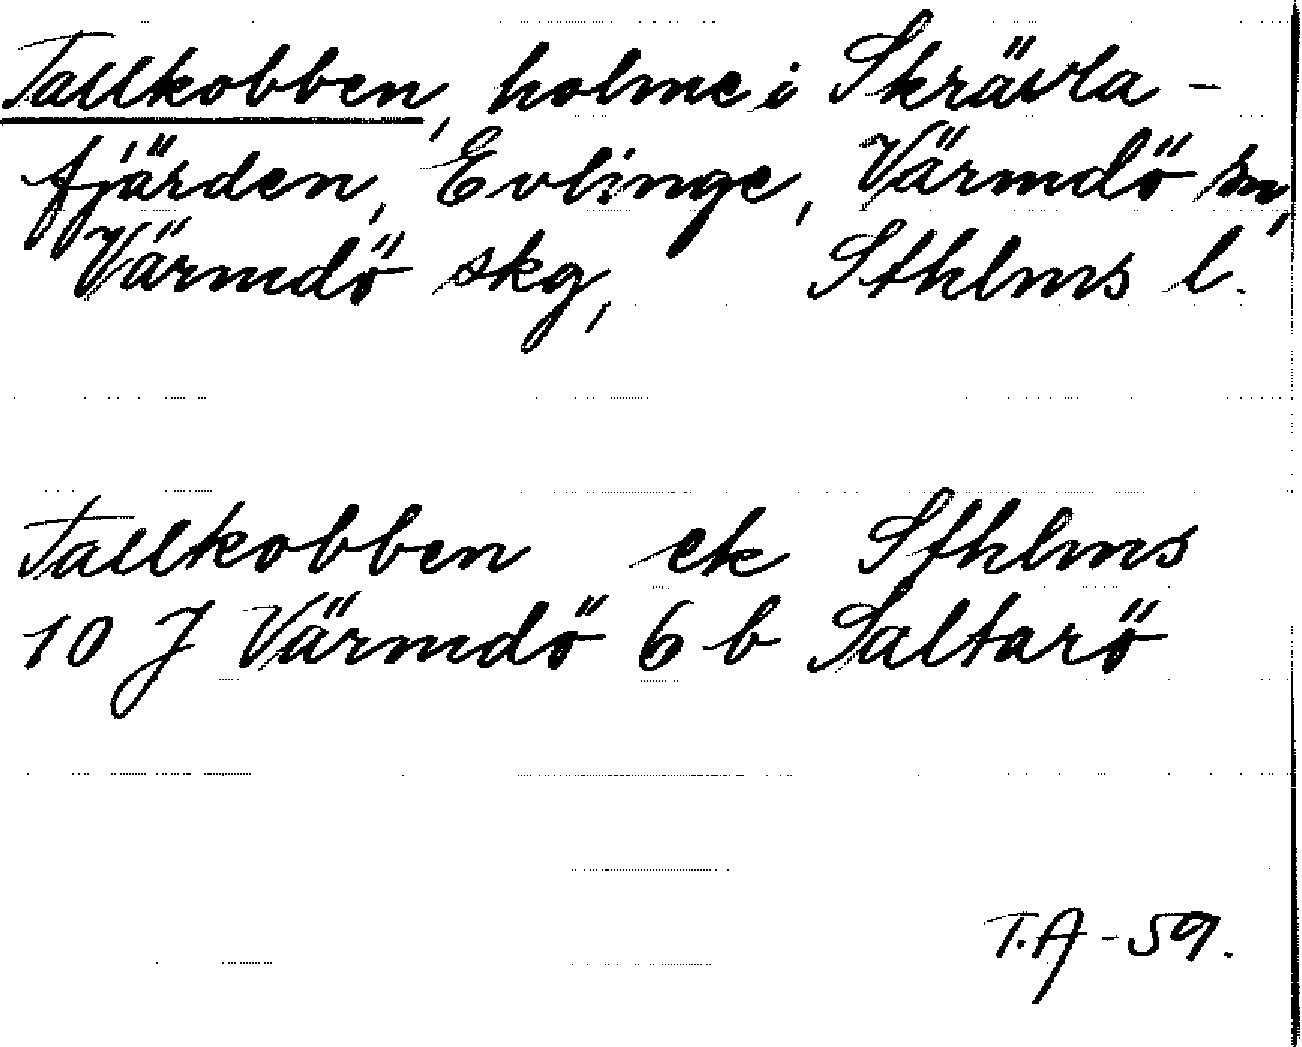 Tallkobben, holme i Skrävla-
fjärden, Evlinge, Värmdö sn,
Värmdö skg, Sthlms l.
Tallkobben ek Sthlms
10 J Värmdö 6 b Saltarö
T.A-59.